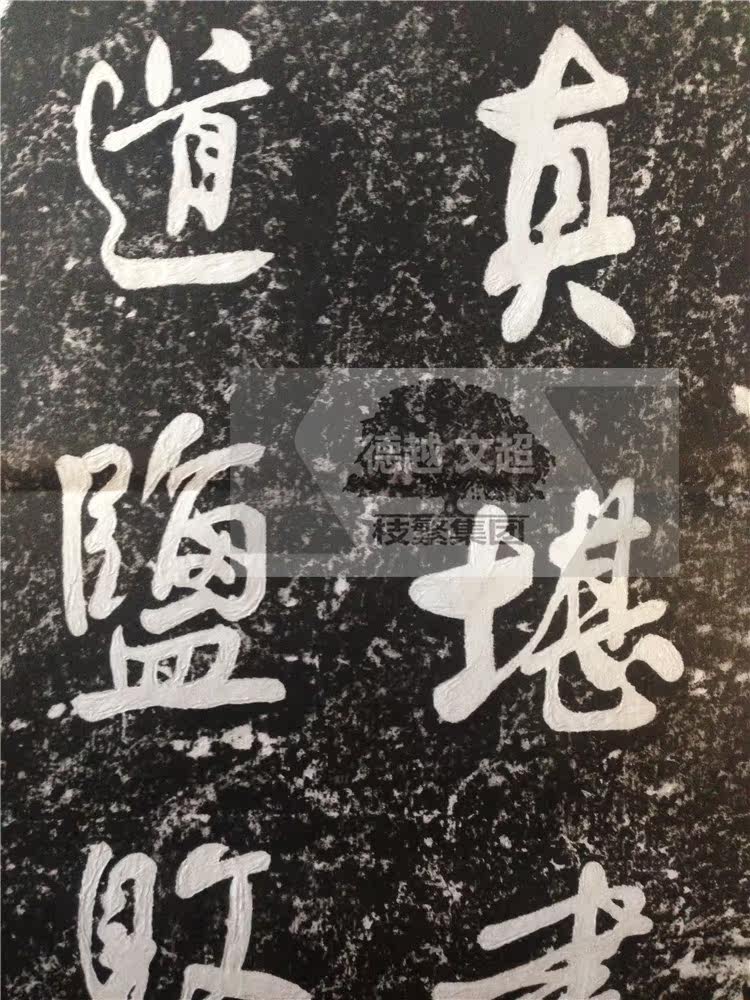 真堪
道鹽
德越 文超
枝繁集团